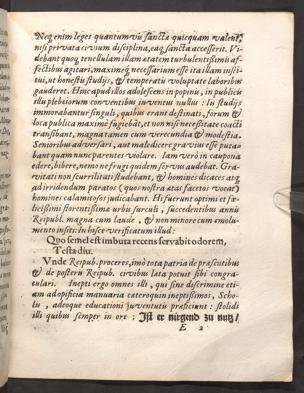 Neq; enim leges quantumvis sancta quicquam valent,
nisi privata civium disciplina, eaq; sancta accesserit. Vi-
debant quoq; tenellulam illam ætatem turbulentissimis af-
fectibus agitari, maximeq; necessarium esse ita illam insti-
tui, ut honestis studijs, & temperatis voluptate laboribus
gauderet. Hinc apud illos adolescens in popinis, in publicis
illis plebeiorum conventibus inventus nullus: In studijs
immorabantur singuli, quibus erant destinati, forum &
loca publica maximè fugiebāt, et non nisi necessitate coacti
transibant, magna tamen cum verecundia & modestia.
Senioribus adversari, aut maledicere gravius esse puta-
bant quàm nunc parentes violare. Iam verò in caupona
edere, bibere, nemo ne frugi quidem servus audebat. Gra-
vitati non scurrilitati studebant, & homines dicaces atq;
ad irridendum paratos (quos nostra ætas facetos vocat)
homines calamitosos judicabant. Hi fuerunt optimi et fœ-
licissimi florentissimæ urbis surculi, succedentibus annis
Reipubl. magna cum laude, & non minore cum emolu-
mento insiti: In hisce verificatum illud:
Quo semel est imbuta recens servabit odorem,
Testa diu.
Vnde Reipub. proceres, imò tota patria de præsentibus
& de posteris Reipub. civibus læta potuit sibi congra-
tulari. Inepti ergo omnes illi, qui sine discrimine eti-
am ad opificia manuaria cæteroquin ineptissimos, Scho-
lis, adeoque educationi juventutis præficiunt: stolidi
illi quibus semper in ore: Ist er nirgend zu nutz/
E 2